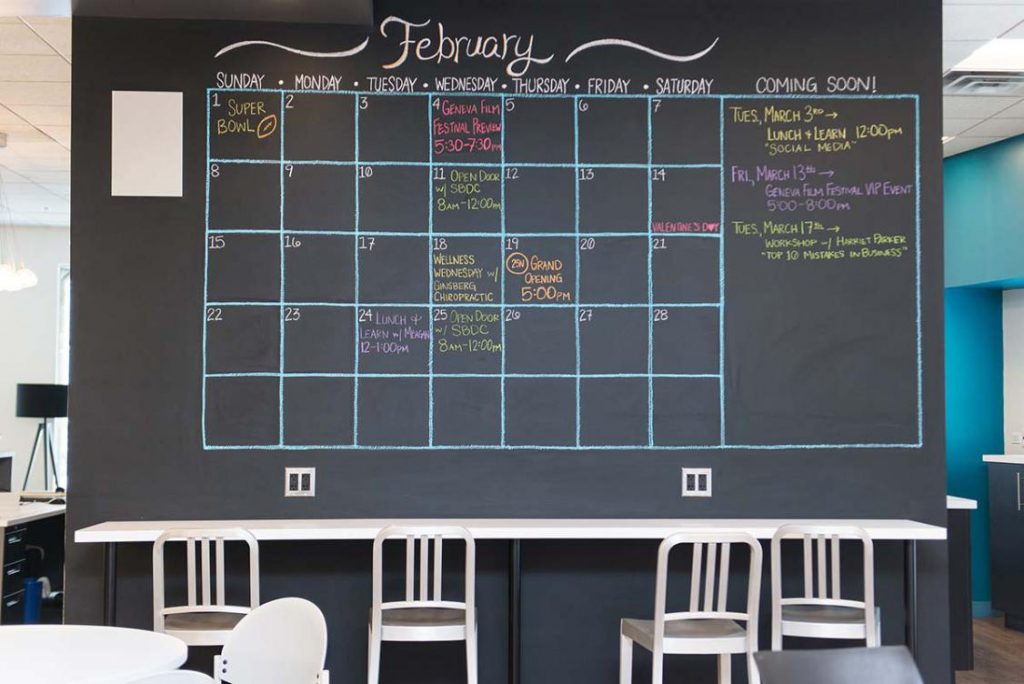 February
SUNDAY • MONDAY • TUESDAY • WEDNESDAY • THURSDAY • FRIDAY • SATURDAY
COMING SOON!
1 SUPER
BOWL
2
3
4 GENEVA FILM
FESTIVAL PREVIEW
5:30-7:30PM
5
6
7
8
9
10
11 OPEN DOOR
W/ SBDC
8AM-12:00PM
12
13
14
VALENTINE'S D♥Y
15
16
17
18
WELLNESS
WEDNESDAY W/
GINSBERG
CHIROPRACTIC
19
25N GRAND
OPENING
5:00PM
20
21
22
23
24 LUNCH &
LEARN W/ MEAGAN
12-1:00PM
25 OPEN DOOR
W/ SBDC
8AM-12:00PM
26
27
28
TUES, MARCH 3RD →
LUNCH & LEARN 12:00PM
"SOCIAL MEDIA"
FRI, MARCH 13TH →
GENEVA FILM FESTIVAL VIP EVENT
5:00-8:00PM
TUES, MARCH 17TH →
WORKSHOP W/ HARRIET PARKER
"TOP 10 MISTAKES IN BUSINESS"